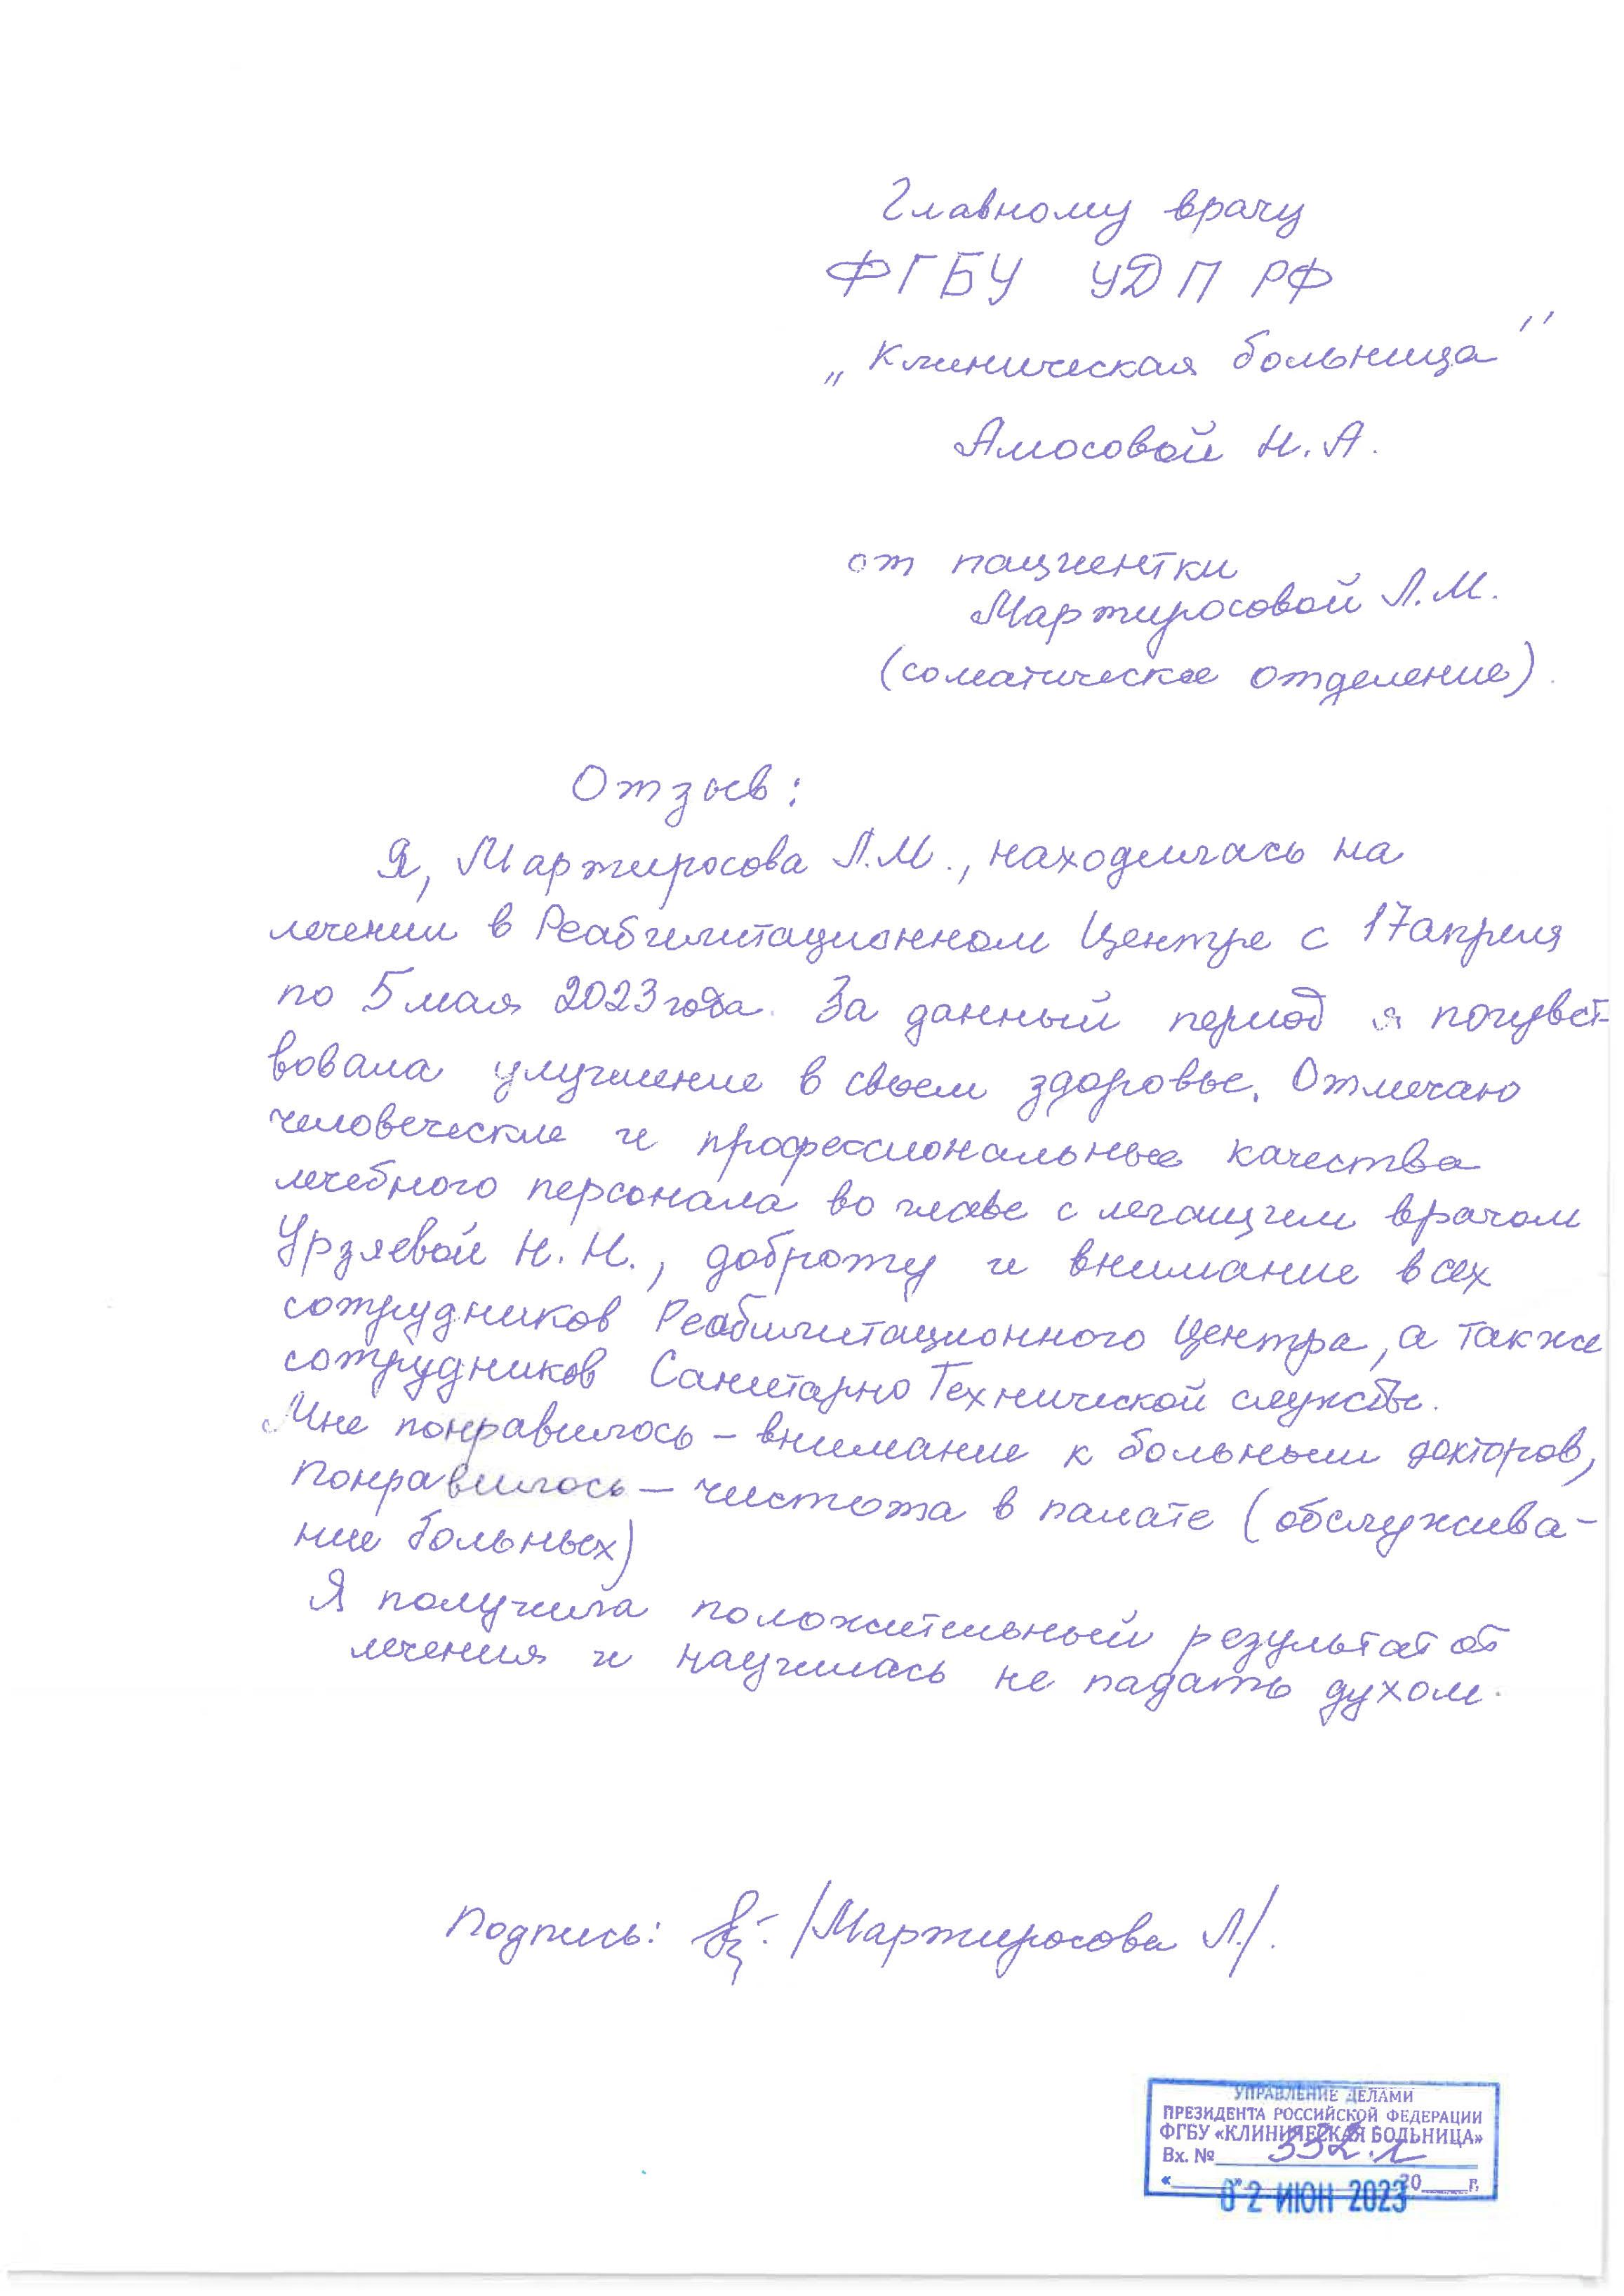 Главному врачу
ФГБУ УДП РФ
„Клиническая больница"
Амосовой Н.А.
от пациентки
Мартиросовой Л.М.
(соматическое отделение).
Отзыв:
Я, Мартиросова Л.М., находилась на
лечении в Реабилитационном Центре с 17 апреля
по 5 мая 2023 года. За данный период я почувст-
вовала улучшение в своем здоровье. Отмечаю
человеческие и профессиональные качества
лечебного персонала во главе с лечащим врачом
Урзяевой Н.Н., доброту и внимание всех
сотрудников Реабилитационного Центра, а также
сотрудников Санитарно Технической службы.
Мне понравилось – внимание к больным докторов,
понравилось – чистота в палате (обслужива-
ние больных)
Я получила положительный результат от
лечения и научилась не падать духом.
Подпись: /Мартиросова Л./.
УПРАВЛЕНИЕ ДЕЛАМИ
ПРЕЗИДЕНТА РОССИЙСКОЙ ФЕДЕРАЦИИ
ФГБУ «КЛИНИЧЕСКАЯ БОЛЬНИЦА»
Вх. № 332.1
«____» ________ 20____ г.
02 ИЮН 2023